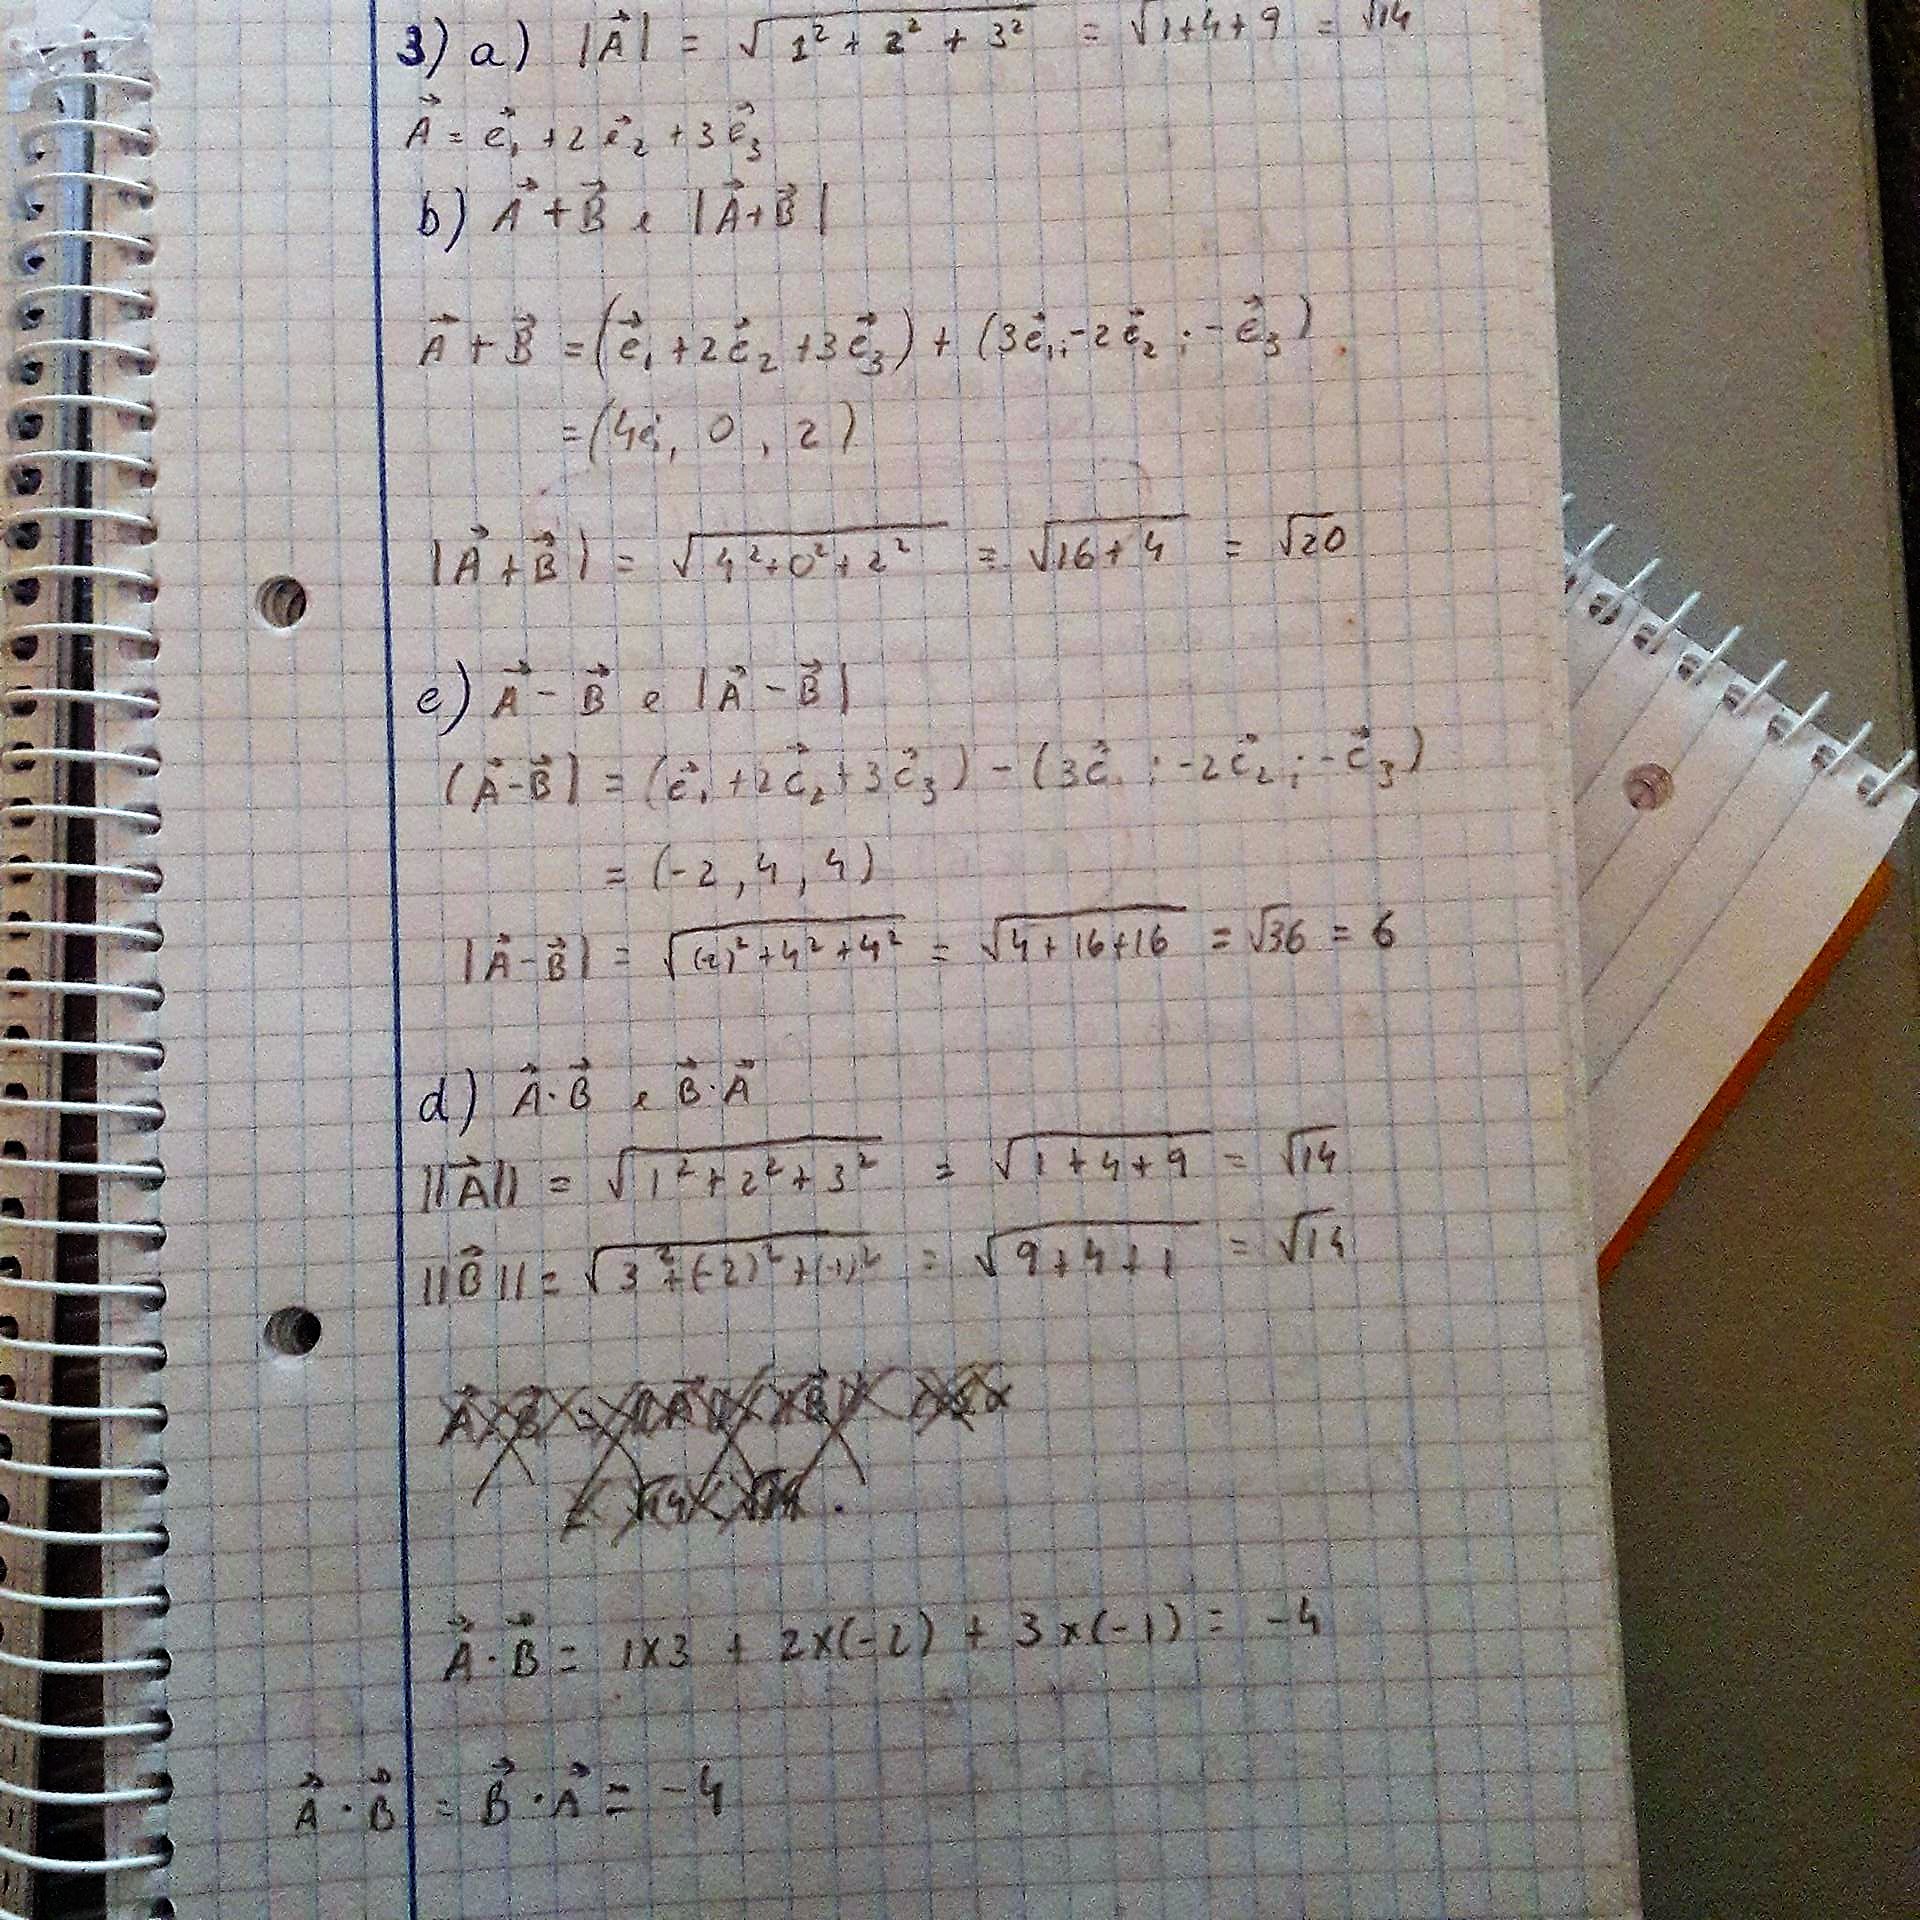 3) a) |A⃗| = √(1² + 2² + 3²) = √(1+4+9) = √14
A⃗ = e⃗₁ + 2e⃗₂ + 3e⃗₃
b) A⃗ + B⃗ e |A⃗+B⃗|
A⃗ + B⃗ = (e⃗₁ + 2e⃗₂ + 3e⃗₃) + (3e⃗₁; -2e⃗₂; -e⃗₃)
= (4e⃗, 0, 2)
|A⃗+B⃗| = √(4²+0²+2²) = √(16+4) = √20
c) A⃗ - B⃗ e |A⃗ - B⃗|
(A⃗-B⃗) = (e⃗₁ + 2e⃗₂ + 3e⃗₃) - (3e⃗₁; -2e⃗₂; -e⃗₃)
= (-2, 4, 4)
|A⃗-B⃗| = √((-2)²+4²+4²) = √(4+16+16) = √36 = 6
d) A⃗·B⃗ e B⃗·A⃗
||A⃗|| = √(1²+2²+3²) = √(1+4+9) = √14
||B⃗|| = √(3²+(-2)²+(-1)²) = √(9+4+1) = √14
A⃗·B⃗ = 1×3 + 2×(-2) + 3×(-1) = -4
A⃗·B⃗ = B⃗·A⃗ = -4